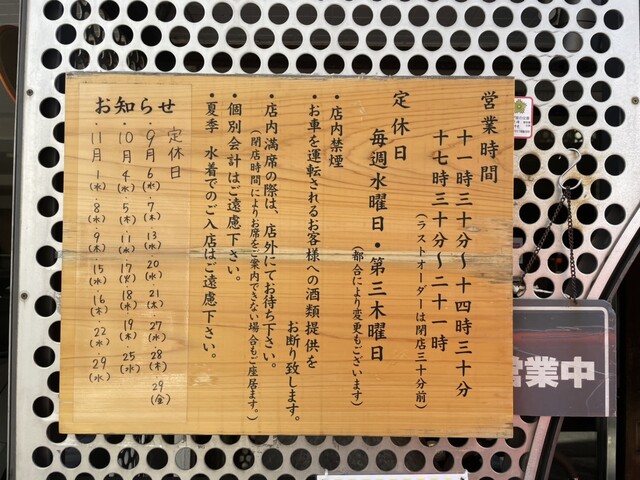 営業時間
十一時三十分～十四時三十分
十七時三十分～二十一時
(ラストオーダーは閉店三十分前)
定休日
毎週水曜日・第三木曜日
(都合により変更もございます)
・店内禁煙
・お車を運転されるお客様への酒類提供を
お断り致します。
・店内満席の際は、店外にてお待ち下さい。
(閉店時間によりお席をご案内できない場合もご座居ます。)
・個別会計はご遠慮下さい。
・夏季 水着でのご入店はご遠慮下さい。
お知らせ
定休日
9月
6(水)
7(木)
13(水)
20(水)
21(木)
27(水)
28(木)
29(金)
10月
4(水)
5(木)
11(水)
17(火)
18(水)
19(木)
25(水)
11月
1(水)
8(水)
9(木)
15(水)
16(木)
22(水)
29(水)
営業中